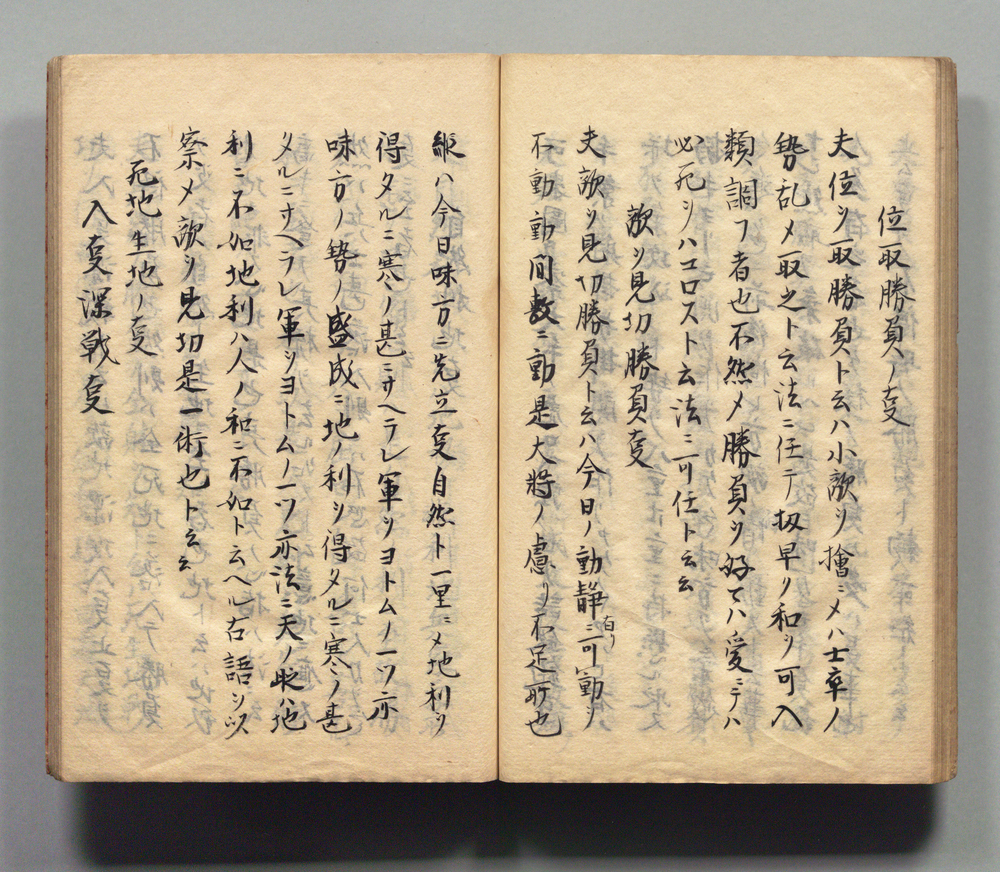 位取勝負ノ叓
夫位ヲ取勝負ト云ハ小敵ヲ擒ニメハ士卒ノ
勢乱メ取之ト云法ニ任テ扱早ク和ヲ可入
類調フ者也不然メ勝負ヲ好マハ愛ニテハ
必死ヲハコロスト云法ニ可仕ト云云
敵ヲ見切勝負叓
夫敵ヲ見切勝負ト云ハ今日ノ動静ニ可有リ動ヲ
不動動間敷ニ動是大将ノ慮リ不足所也
縦ハ今日味方ニ先立叓自然ト一里ニメ地利ヲ
得タルニ寒ノ甚ニサヘラレ軍ヲヨトムノ一ツ亦
味方ノ勢ノ盛成ニ地ノ利ヲ得タルニ寒ノ甚
タルニサヘラレ軍ヲヨトムノ一ツ亦法ニ天ノ時ハ地
利ニ不如地利ハ人ノ和ニ不如ト云ヘル古語ヲ以
察メ敵ヲ見切是一術也ト云云
死地生地ノ叓
入叓深戦叓